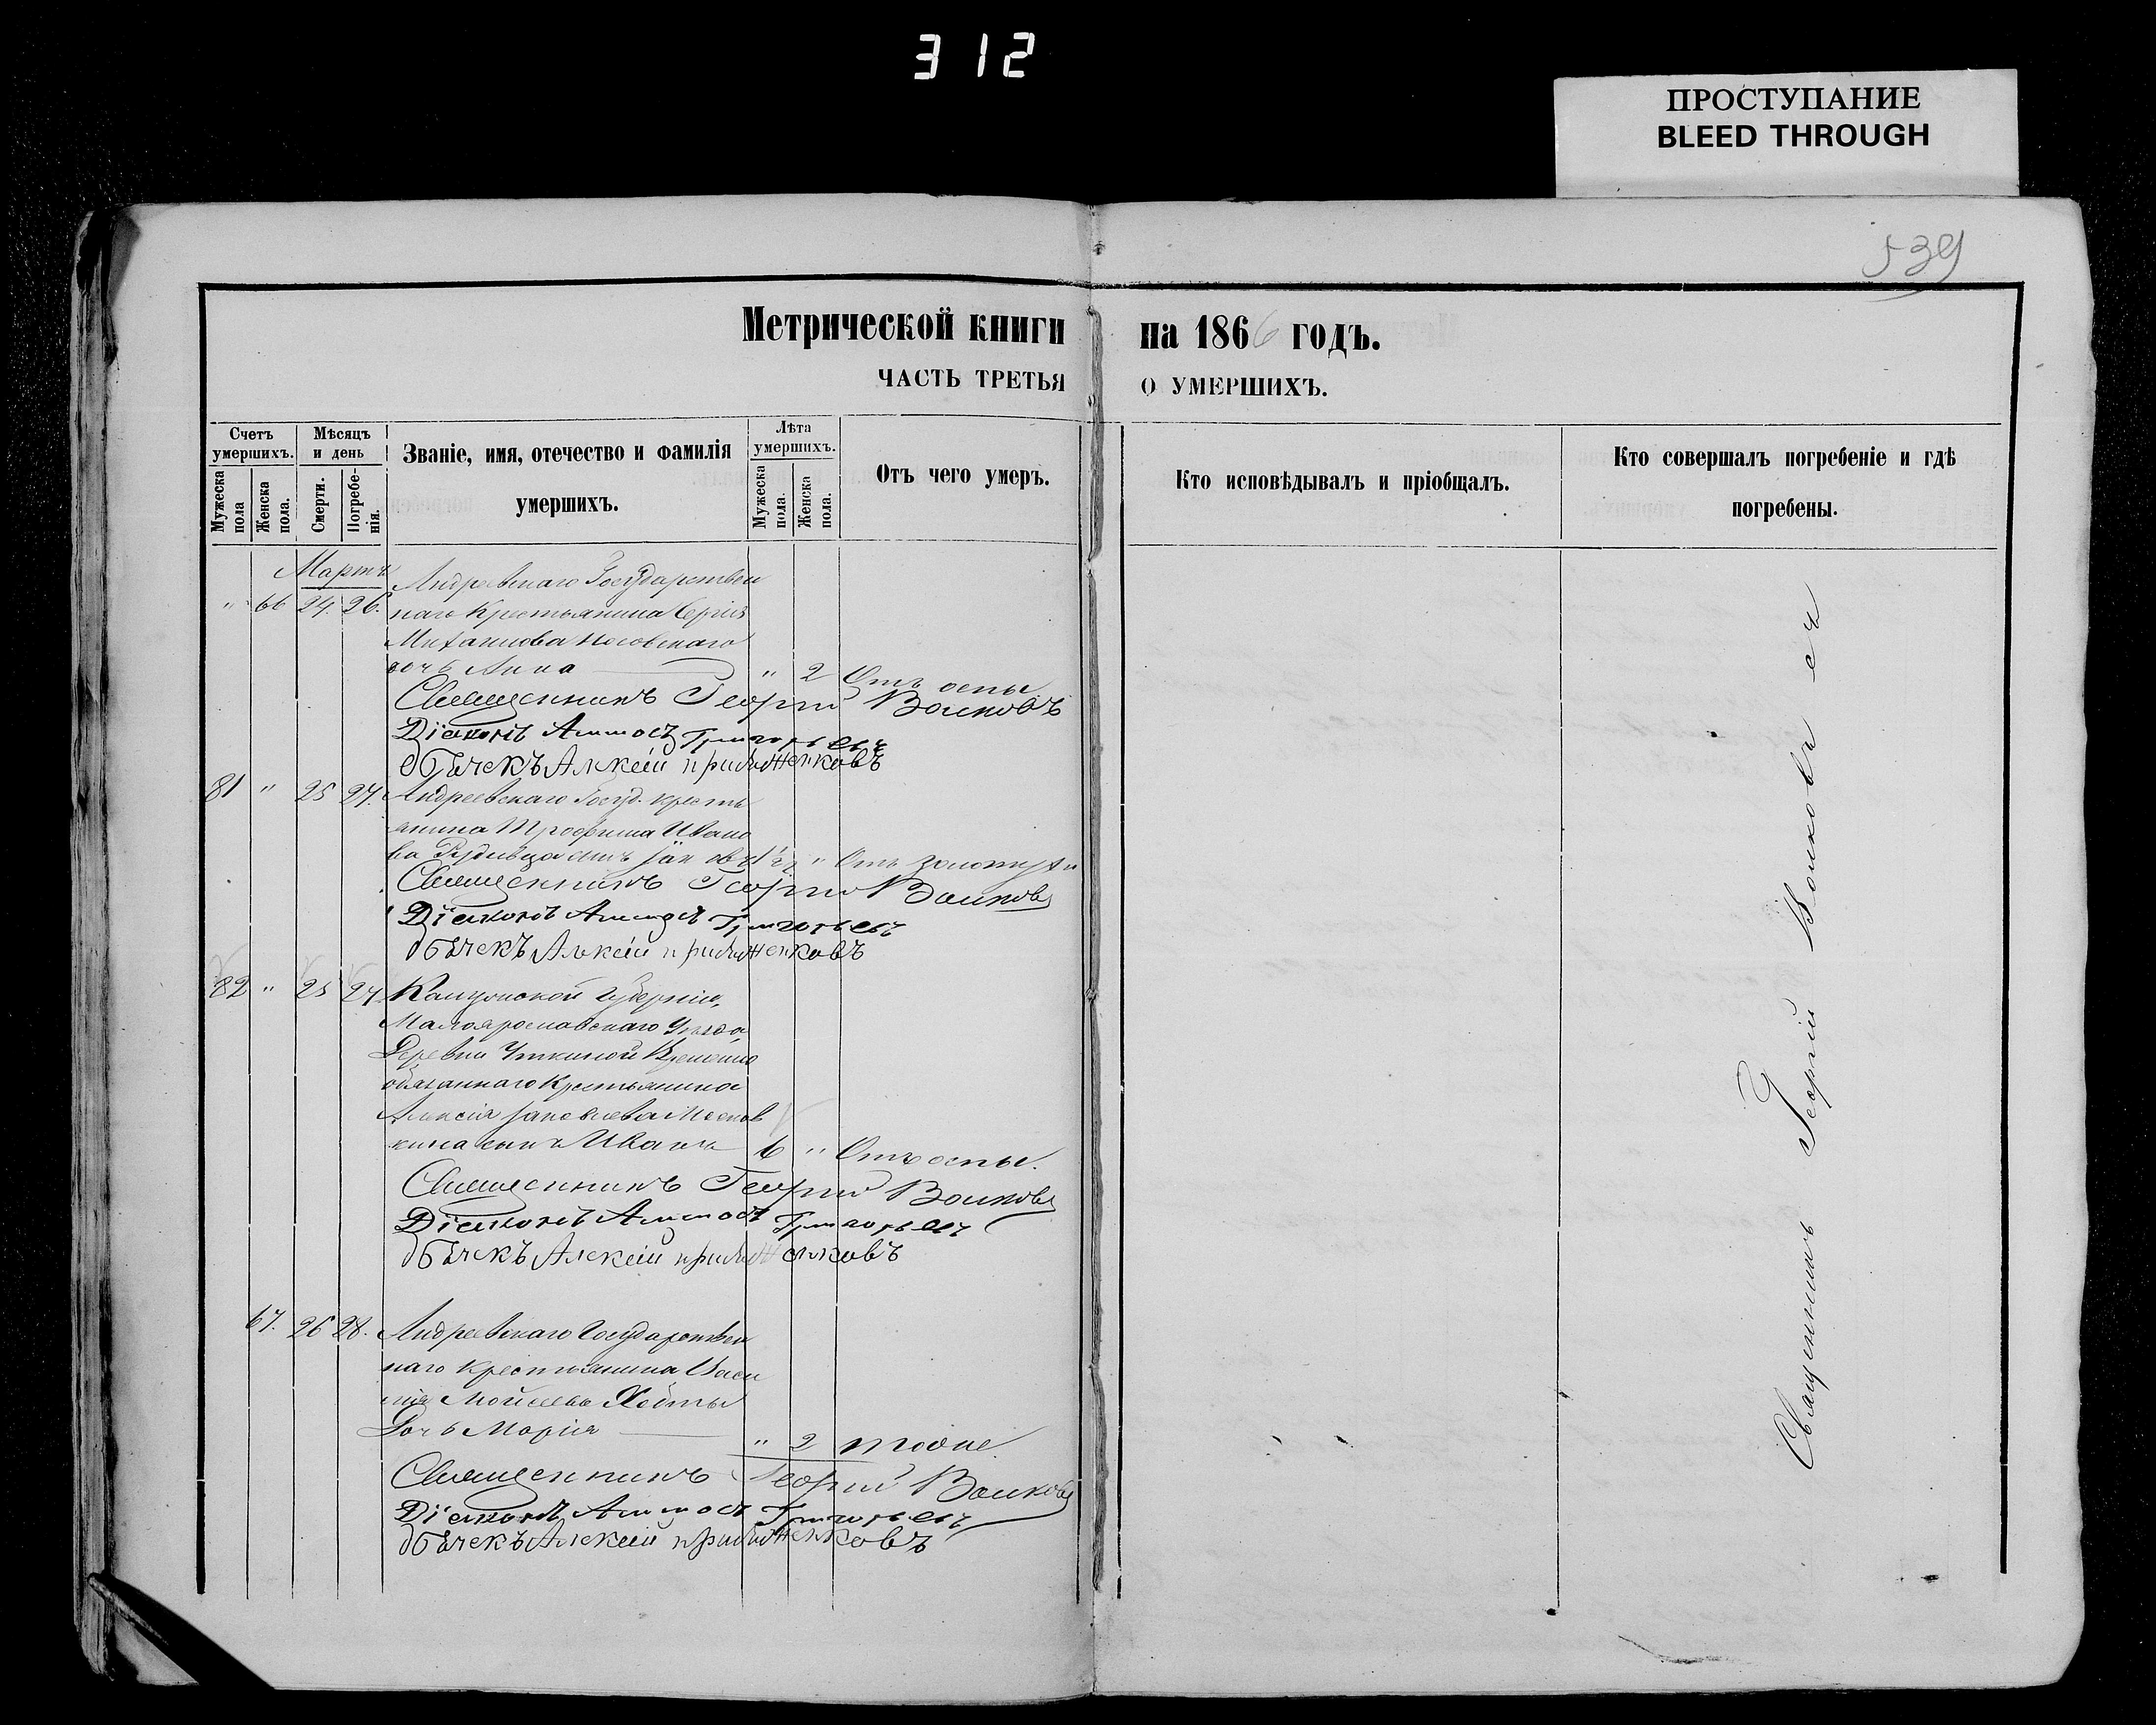 312
ПРОСТУПАНИЕ
BLEED THROUGH
539
Метрической книги на 1866 годъ.
ЧАСТЬ ТРЕТЬЯ О УМЕРШИХЪ.
Счетъ умершихъ.
Мужеска пола
Женска пола.
Мѣсяцъ и день
Смерти.
Погребенія.
Званіе, имя, отечество и фамилія умершихъ.
Лѣта умершихъ.
Мужеска пола.
Женска пола.
Отъ чего умеръ.
Кто исповѣдывалъ и пріобщалъ.
Кто совершалъ погребеніе и гдѣ погребены.
Мартъ
Андреевскаго Государствен
" 66 24. 26. наго Крестьянина Сергія
Михаилова Носовскаго
дочь Анна " 2 Отъ оспы
Священникъ Георгій Волковъ
Діаконъ Аммосъ Григорьевъ
дьячекъ Алексій
81 " 25 27. Андреевскаго Госуд. кресть
янина Трофима Ивано
ва сынъ 1½ " Отъ золотухи
Священникъ Георгій Волковъ
Діаконъ Аммосъ Григорьевъ
дьячекъ Алексій
82 " 25 27 Калужской Губерніи,
Малоярославскаго Уѣзда,
Деревни Временно
обязаннаго Крестьянина
Алексія Яковлева Москов
кина сынъ Иванъ 6 " Отъ оспы.
Священникъ Георгій Волковъ
Діаконъ Аммосъ Григорьевъ
дьячекъ Алексій
67. 26 28. Андреевскаго Государствен
наго крестьянина Васи
лія Мойсеева
Дочь Марія " 2 тоже
Священникъ Георгій Волковъ
Діаконъ Аммосъ Григорьевъ
дьячекъ Алексій
Священникъ Георгій Волковъ